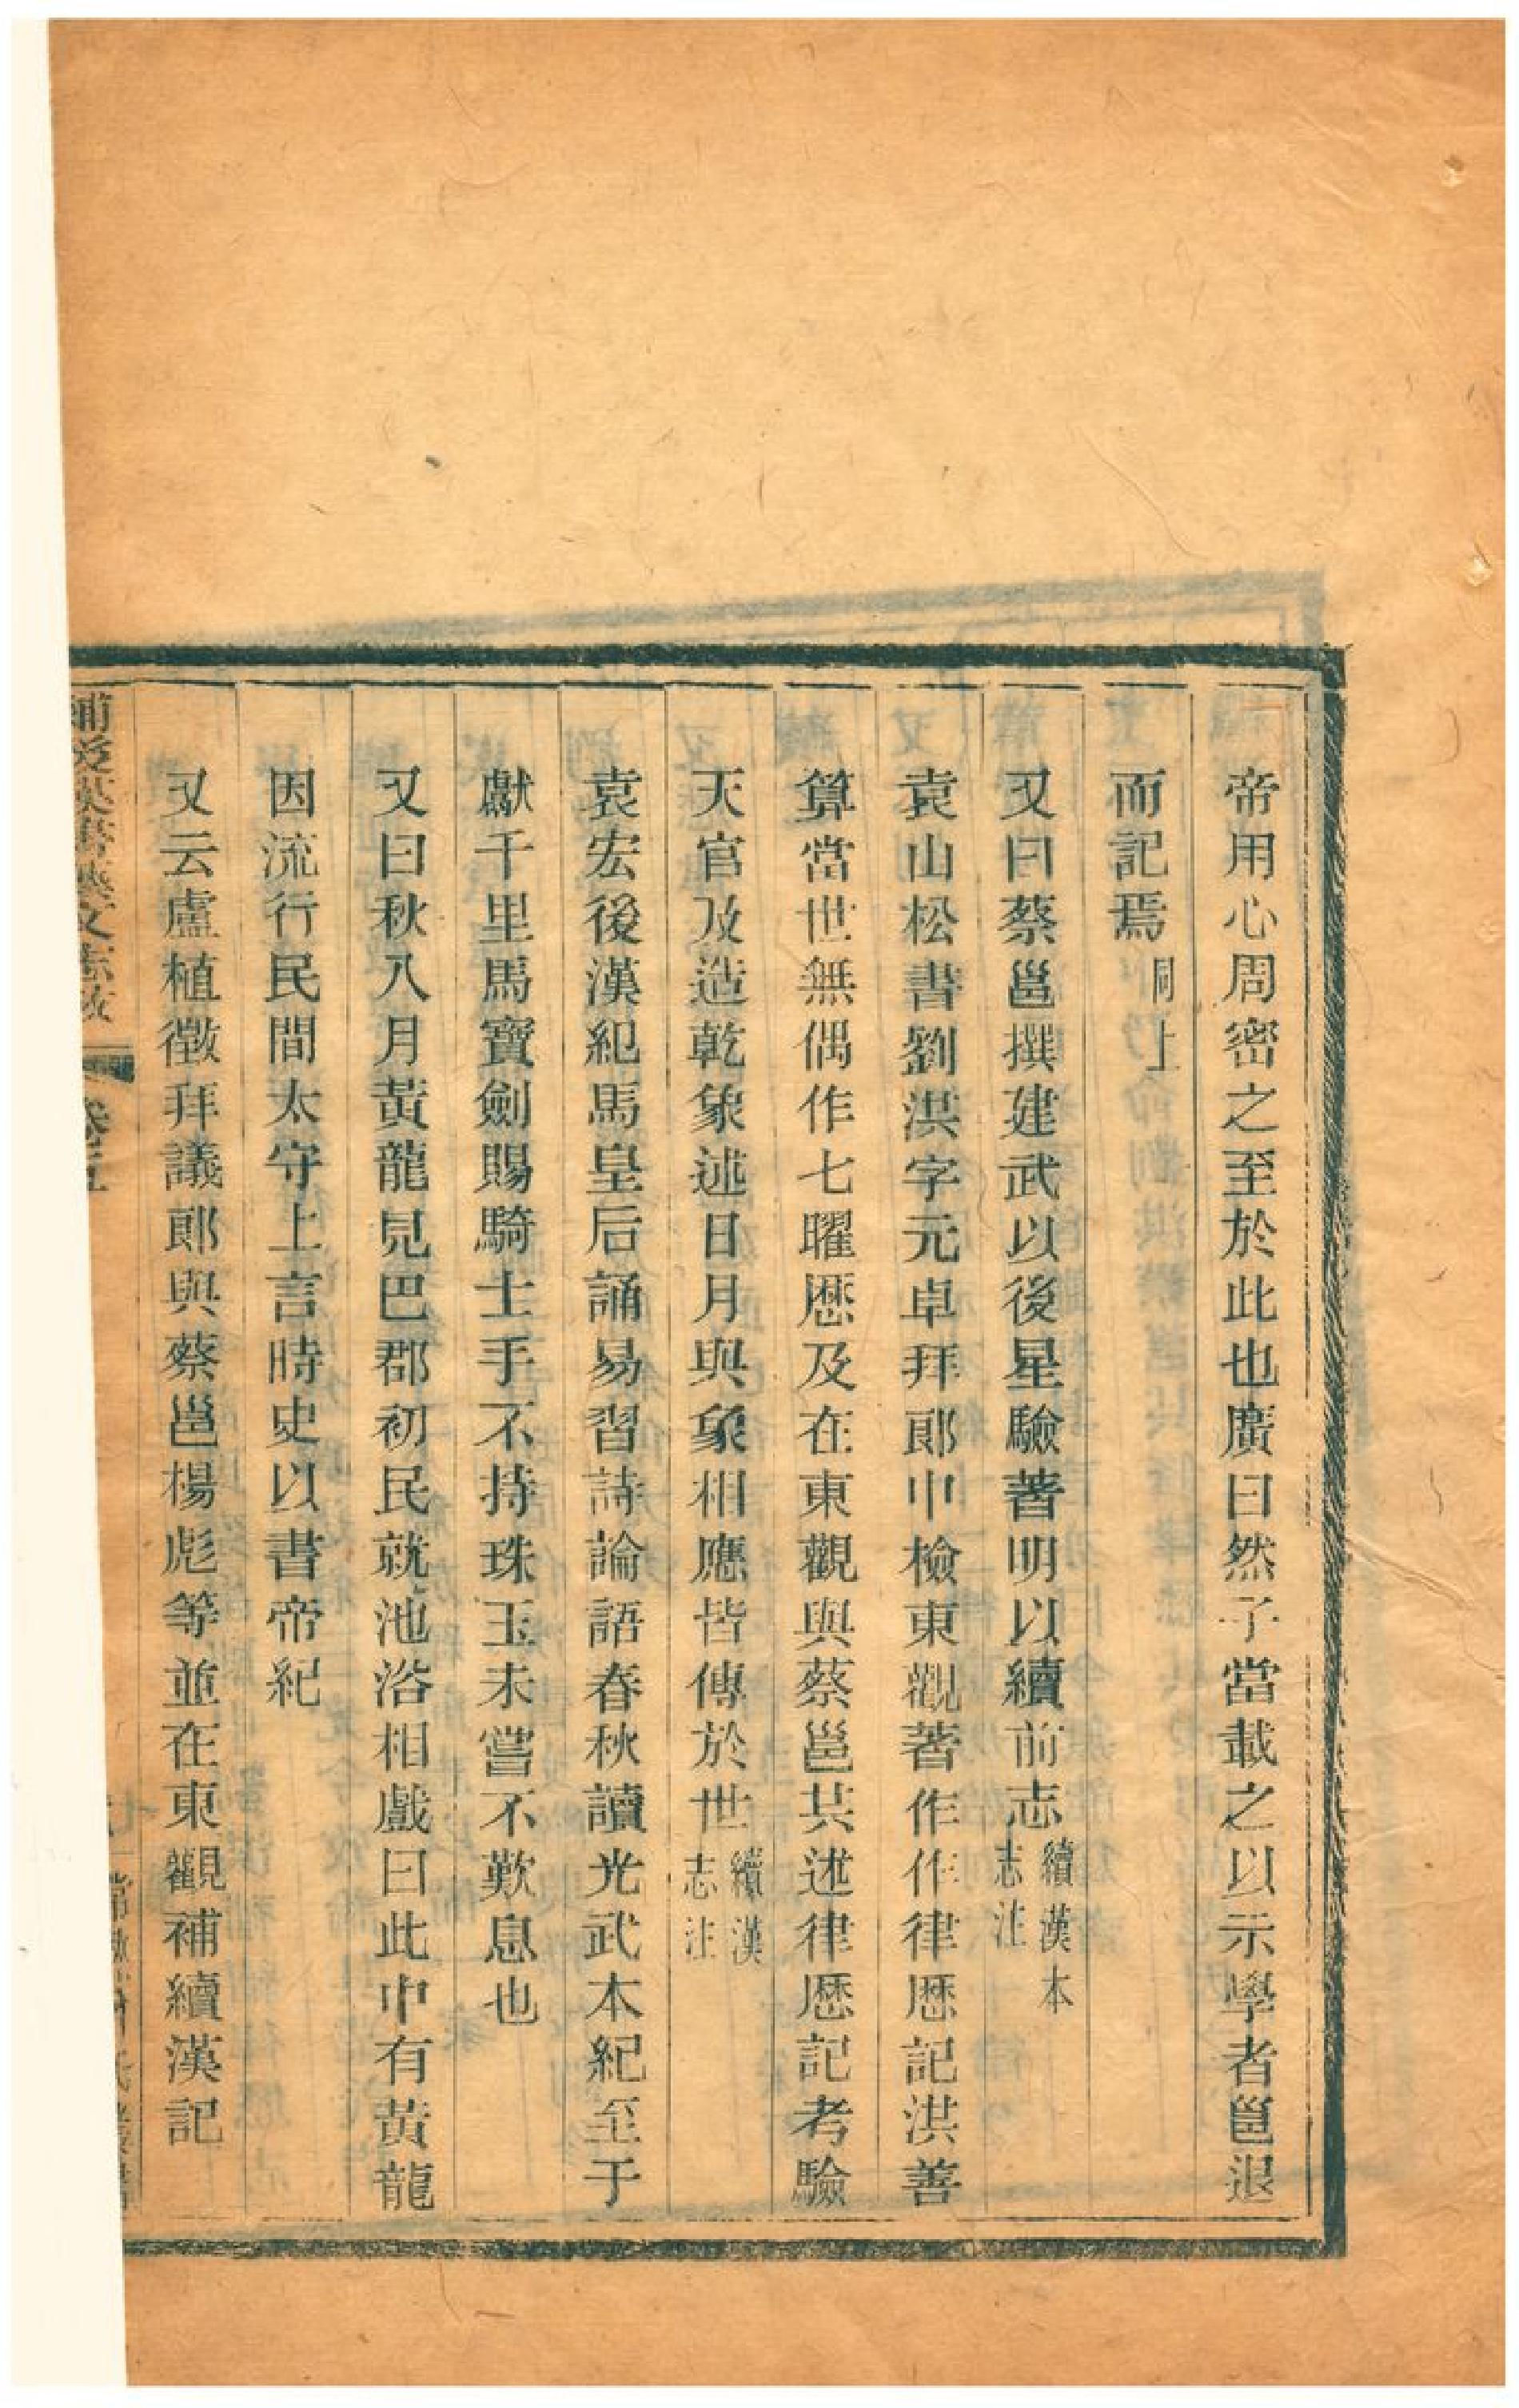 帝用心周密之至於此也廣曰然子當載之以示學者邕退
而記焉同上
又曰蔡邕撰建武以後星驗著明以續前志續漢本志注
袁山松書劉洪字元卓拜郞中檢東觀著作作律歷記洪善
算當世無偶作七曜歷及在東觀與蔡邕共述律歷記考驗
天官及造乾象述日月與象相應皆傳於世續漢志注
袁宏後漢紀馬皇后誦易習詩論語春秋讀光武本紀至于
獻千里馬寶劍賜騎士手不持珠玉未嘗不歎息也
又曰秋八月黃龍見巴郡初民就池浴相戲曰此中有黃龍
因流行民間太守上言時史以書帝紀
又云盧植徵拜議郞與蔡邕楊彪等並在東觀補續漢記
補後漢書藝文志攷 卷十五